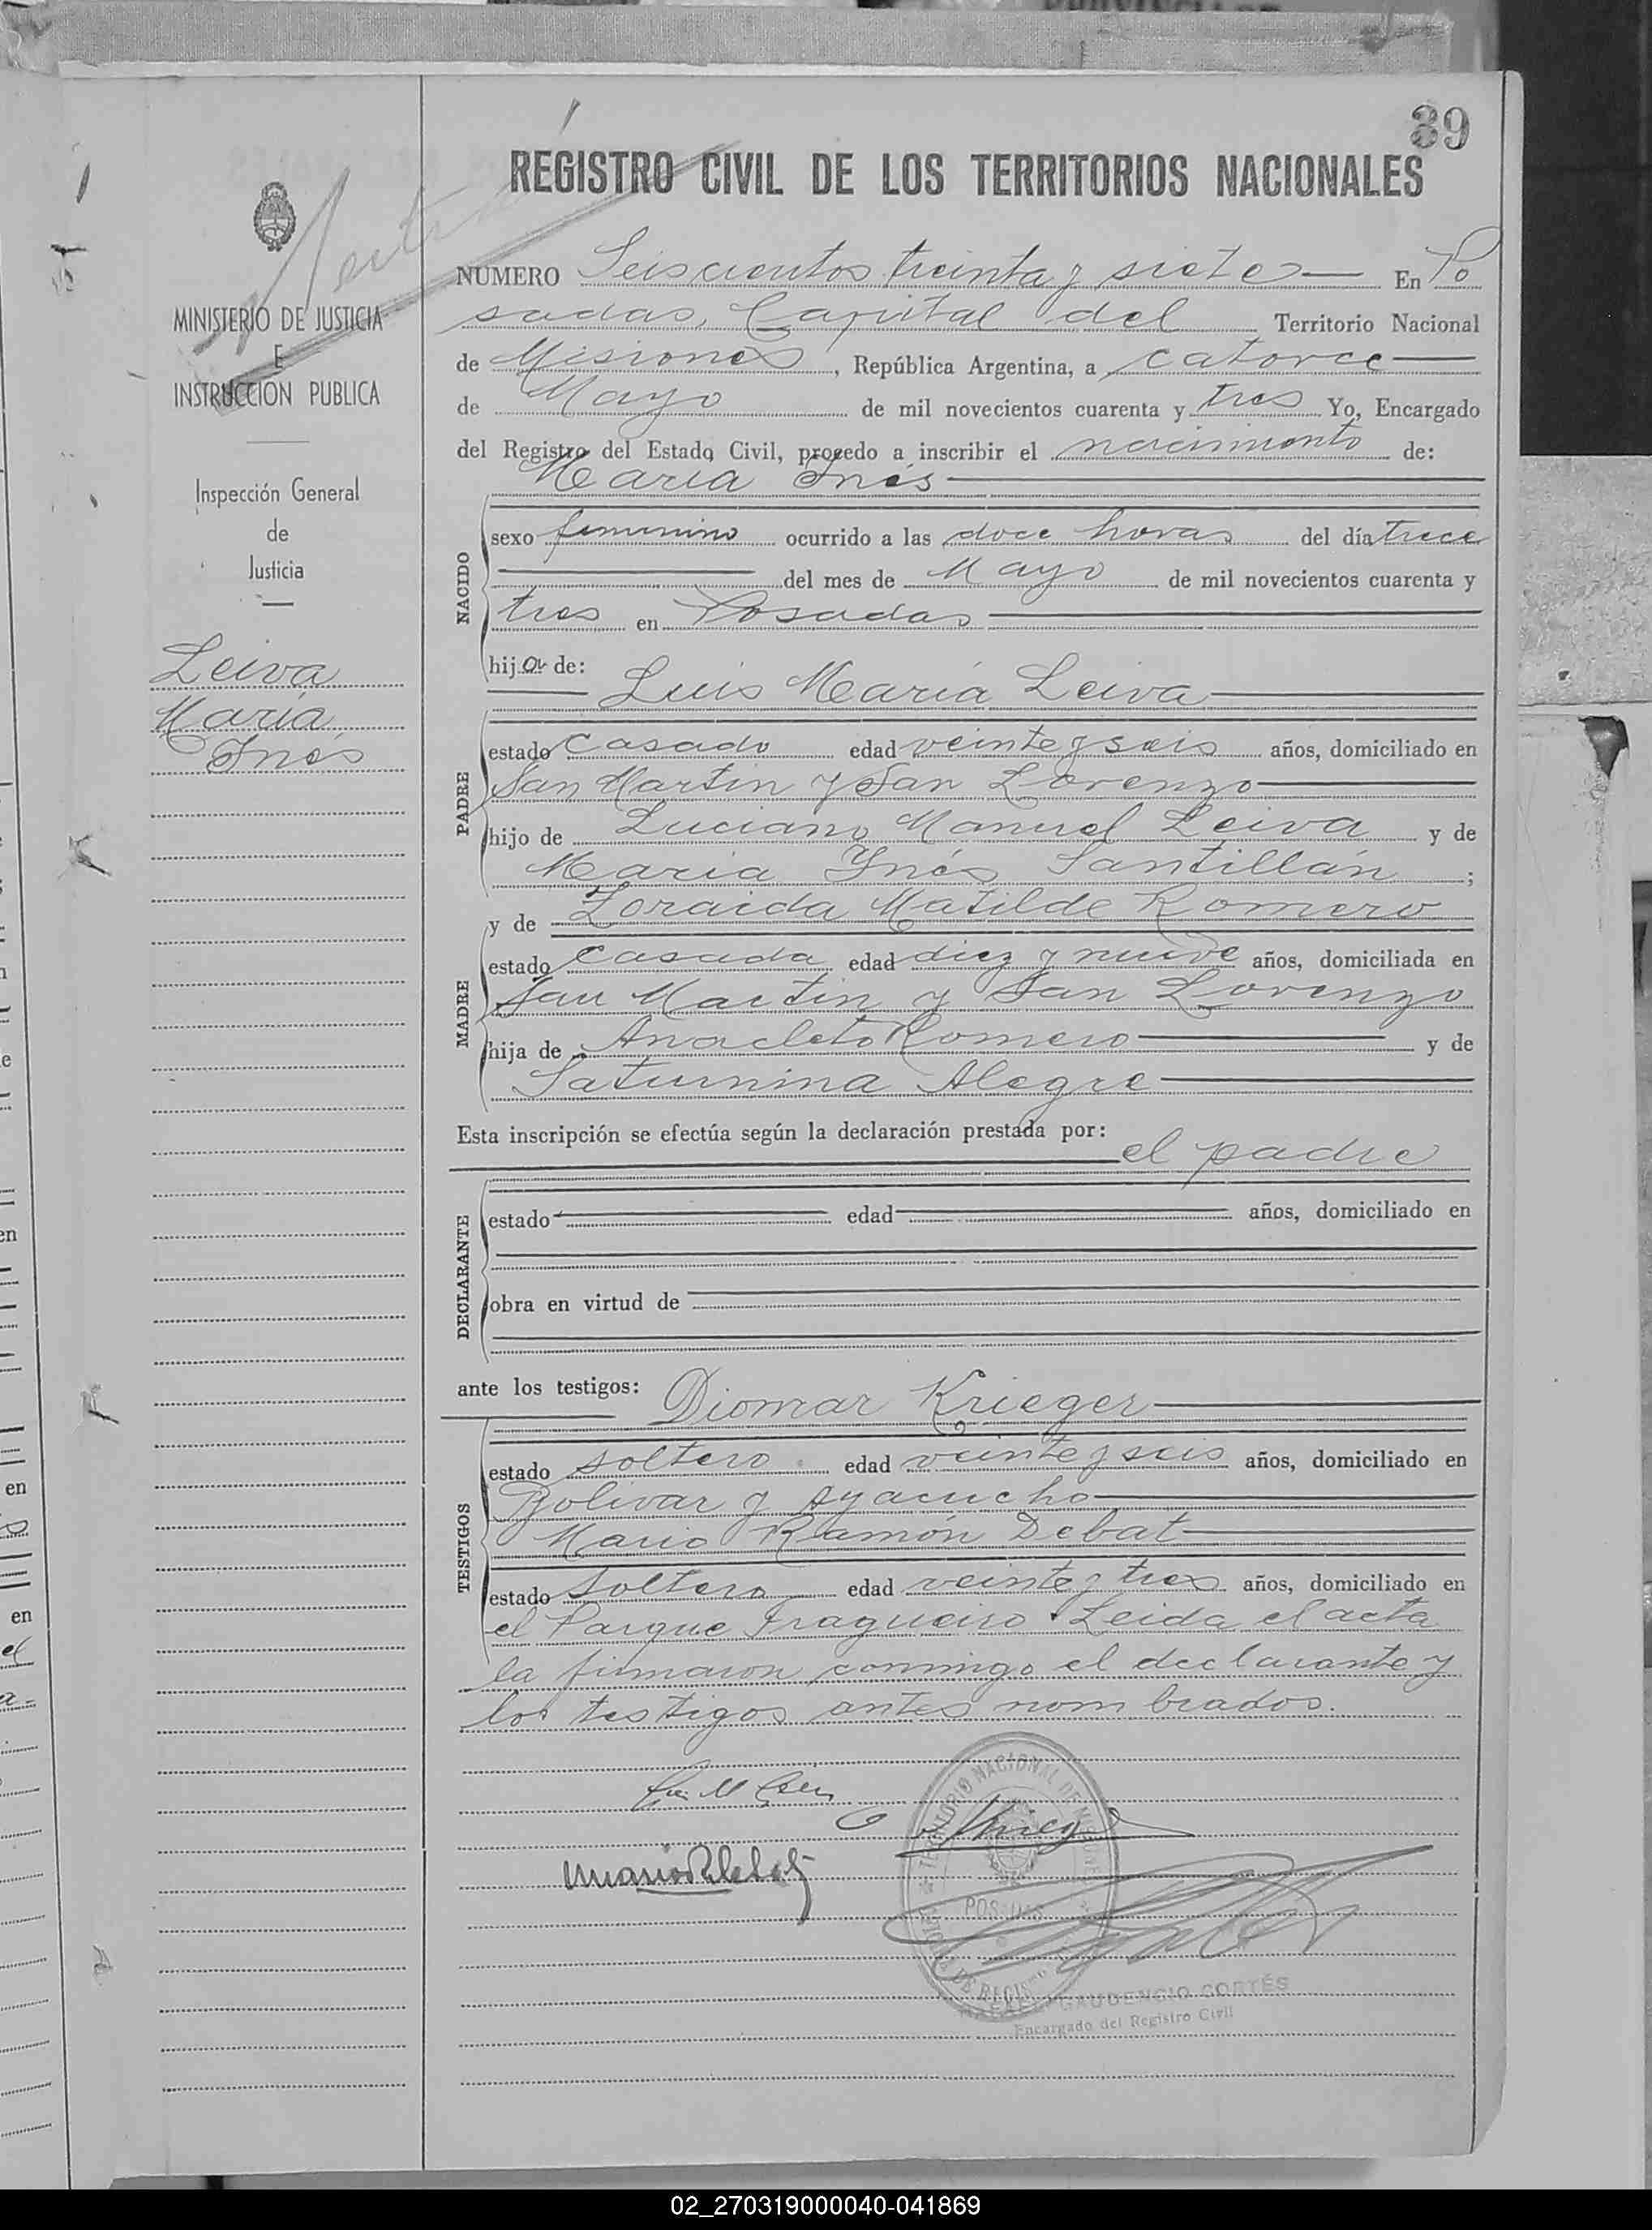 39
REGISTRO CIVIL DE LOS TERRITORIOS NACIONALES
MINISTERIO DE JUSTICIA
E
INSTRUCCIÓN PUBLICA
Inspección General
de
Justicia
Leiva
María
Inés
NUMERO Seiscientos treinta y siete — En Po
sadas, Capital del Territorio Nacional
de Misiones, República Argentina, a catorce
de Mayo de mil novecientos cuarenta y tres Yo, Encargado
del Registro del Estado Civil, procedo a inscribir el nacimiento de:
María Inés
NACIDO
sexo femenino ocurrido a las doce horas del día trece
del mes de Mayo de mil novecientos cuarenta y
tres en Posadas
hija de:
Luis María Leiva
PADRE
estado casado edad veinte y seis años, domiciliado en
San Martín y San Lorenzo
hijo de Luciano Manuel Leiva y de
María Ynés Santillán ;
y de Zoraida Matilde Romero
MADRE
estado casada edad diez y nueve años, domiciliada en
San Martín y San Lorenzo
hija de Anacleto Romero y de
Saturnina Alegre
Esta inscripción se efectúa según la declaración prestada por:
el padre
DECLARANTE
estado edad años, domiciliado en
obra en virtud de
ante los testigos: Diomar Krieger
TESTIGOS
estado soltero edad veinte y seis años, domiciliado en
Bolívar y Ayacucho
Mario Ramón Debat
estado soltero edad veinte y tres años, domiciliado en
el Parque Fragueiro. Leida el acta
la firmaron conmigo el declarante y
los testigos antes nombrados.
TERRITORIO NACIONAL DE MISIONES
POSADAS
RAFAEL GAUDENCIO CORTÉS
Encargado del Registro Civil
02_270319000040-041869